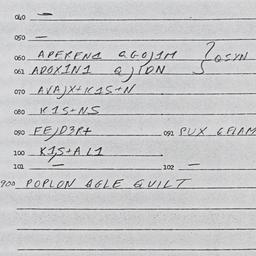 040 —
050 —
060 APEPENA QGOJ1M } QSYN
061 ADOX1N1 QJIDN
070 AVAJX+K1S+N
080 K1S+NS
090 FEJD3R+ 091 PUX 6FIAM
100 K1S+AL1
101 — 102 —
900 POPLON AGLE QUILT